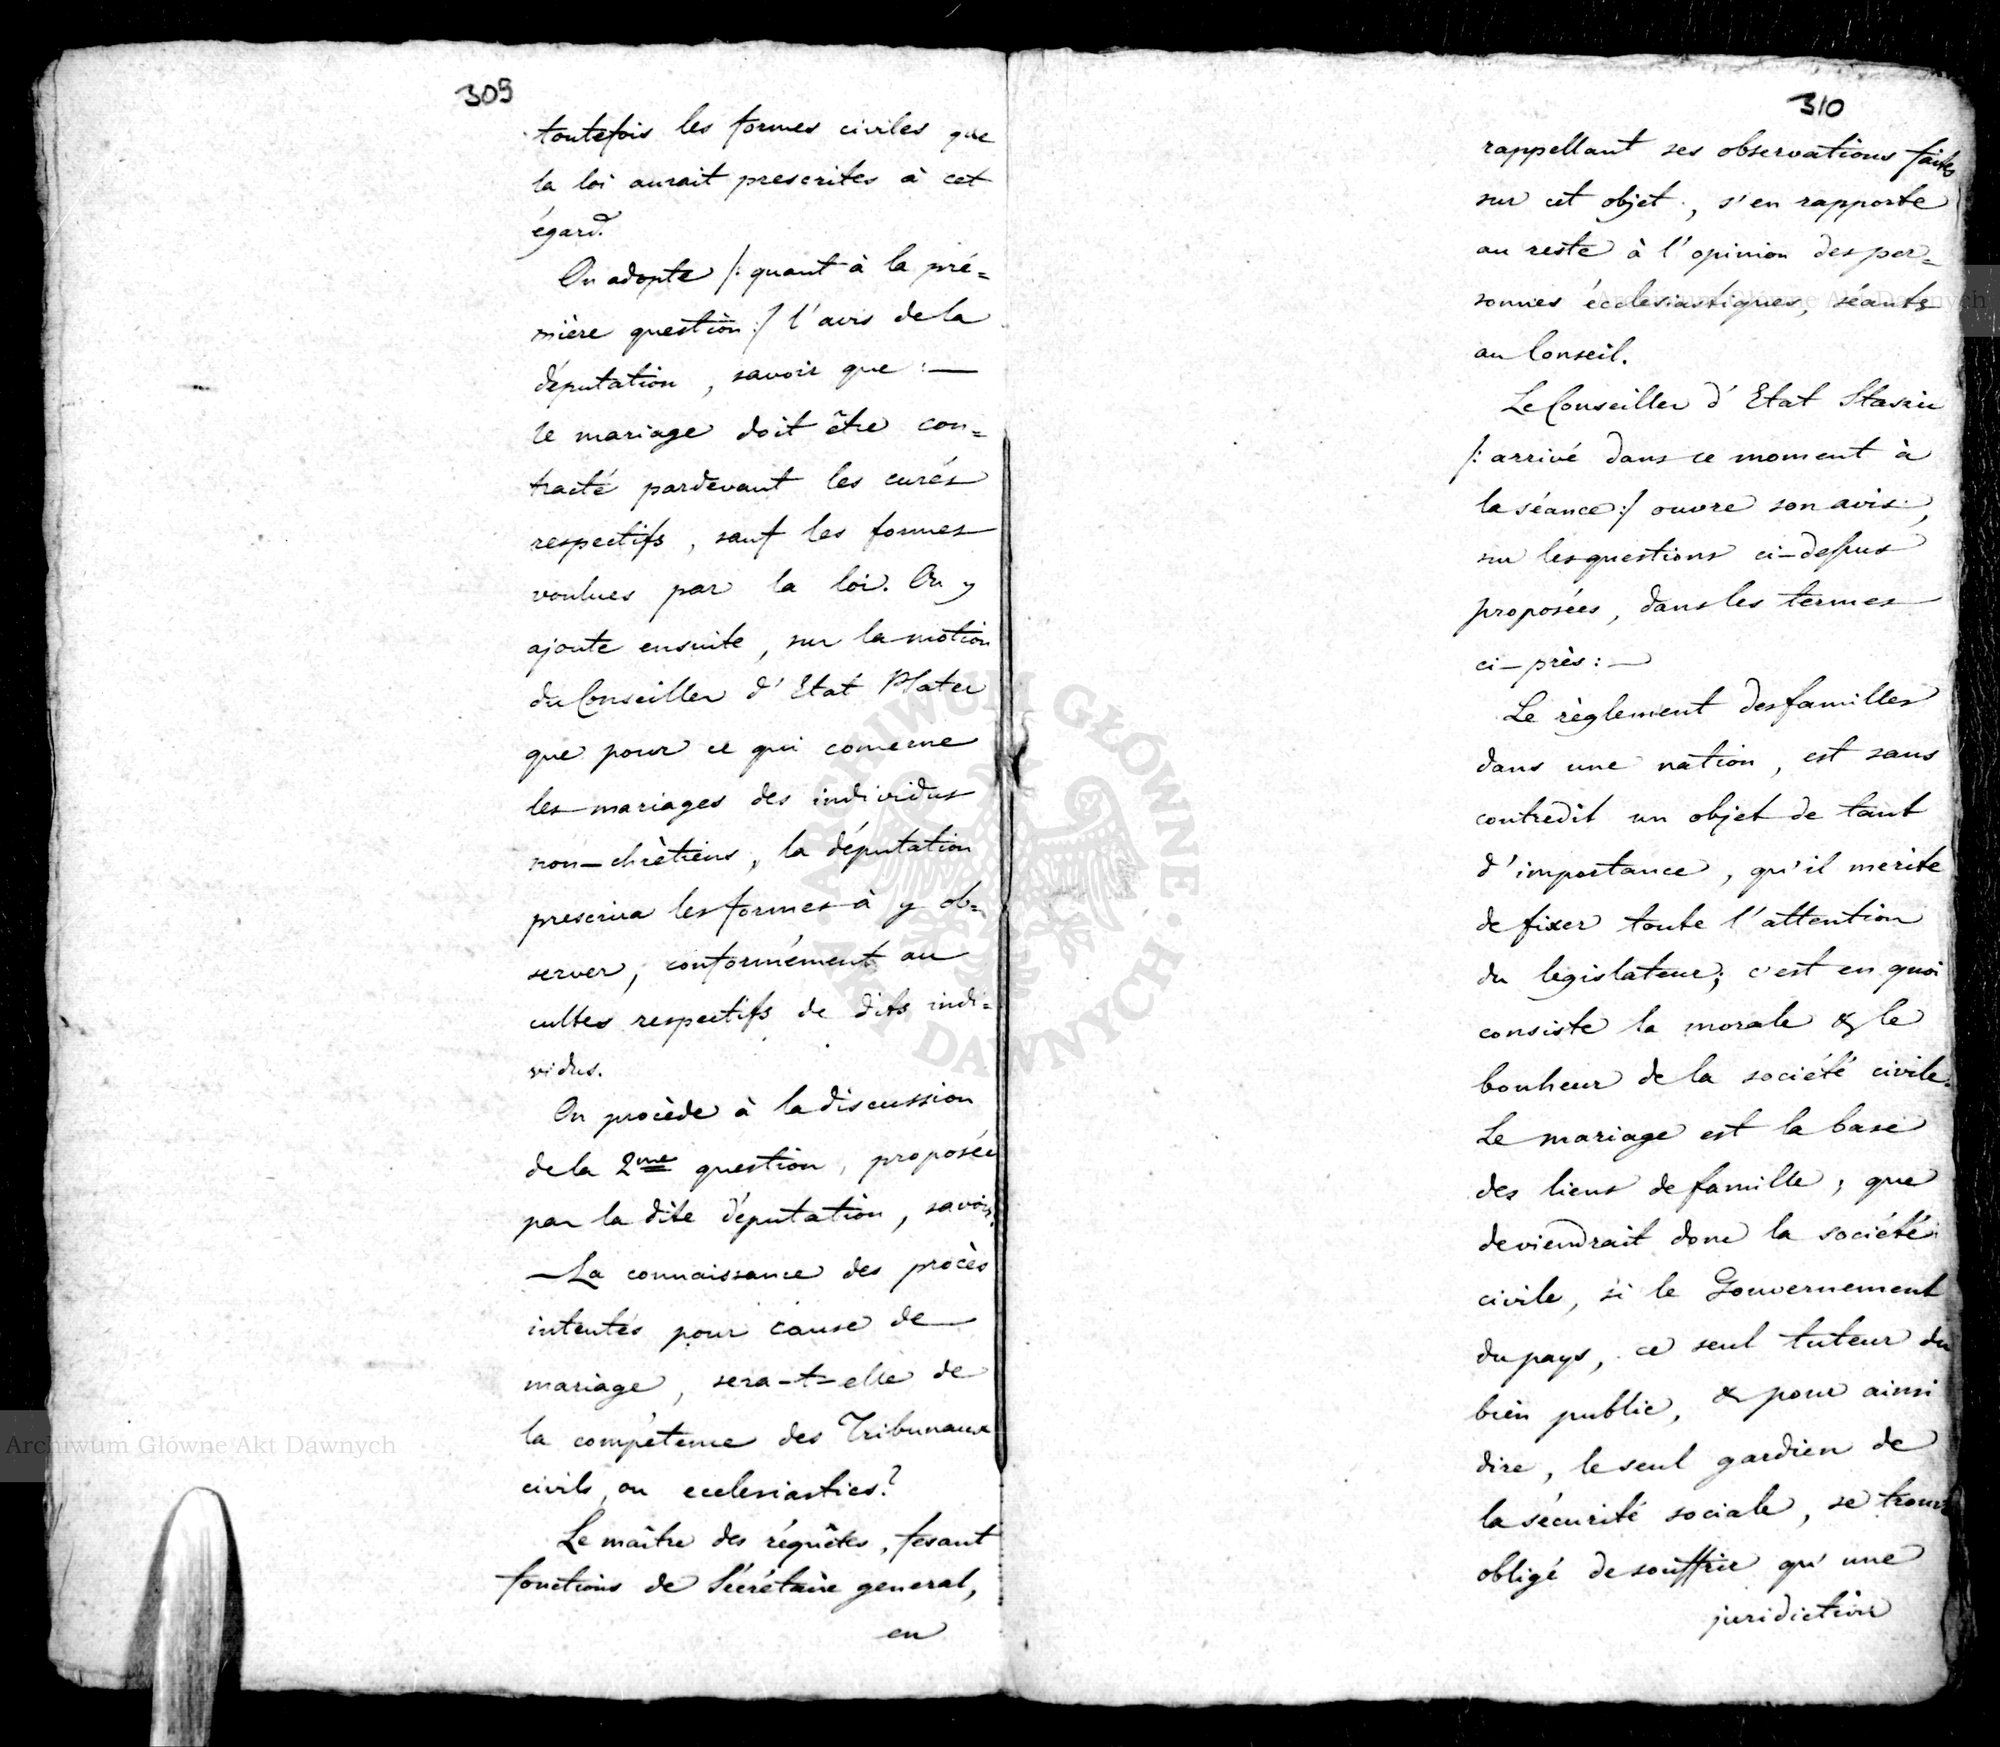 309
toutefois les formes civiles que
la loi aurait prescrites à cet
égard.
On adopte /: quant à la pré=
mière question :/ l'avis de la
députation, savoir que : —
le mariage doit être con=
tracté pardevant les curés
respectifs, sauf les formes
voulues par la loi. On y
ajoute ensuite, sur la motion
du Conseiller d'Etat Plater
que pour ce qui concerne
les mariages des individus
non-chrètiens, la députation
prescrira les formes à y ob=
server, conformément au
cultes respectifs de dits indi=
vidus.
On procède à la discussion
de la 2me question, proposée
par la dite députation, savoir:
— La connaissance des procès
intentés pour cause de
mariage, sera-t-elle de
la compétence des Tribunaux
civils, ou ecclesiastics?
Le maître des réquêtes, fesant
fonctions de Sécrétaire general,
en
310
rappellant ses observations faites
sur cet objet, s'en rapporte
au reste à l'opinion des per=
sonnes écclesiastiques, séants
au Conseil.
Le Conseiller d'Etat Staszic
/: arrivé dans ce moment à
la séance :/ ouvre son avis,
sur les questions ci-dessus
proposées, dans les termes
ci-près : —
Le règlement des familles
dans une nation, est sans
contredit un objet de tant
d'importance, qu'il merite
de fixer toute l'attention
du legislateur; c'est en quoi
consiste la morale & le
bonheur de la société civile.
Le mariage est la base
des liens de famille; que
deviendrait donc la société
civile, si le Gouvernement
du pays, ce seul tuteur du
bien public, & pour ainsi
dire, le seul gardien de
la sécurité sociale, se trouve
obligé de souffrir qu'une
juridiction
ARCHIWUM GŁÓWNE AKT DAWNYCH
Archiwum Główne Akt Dawnych
Archiwum Główne Akt Dawnych